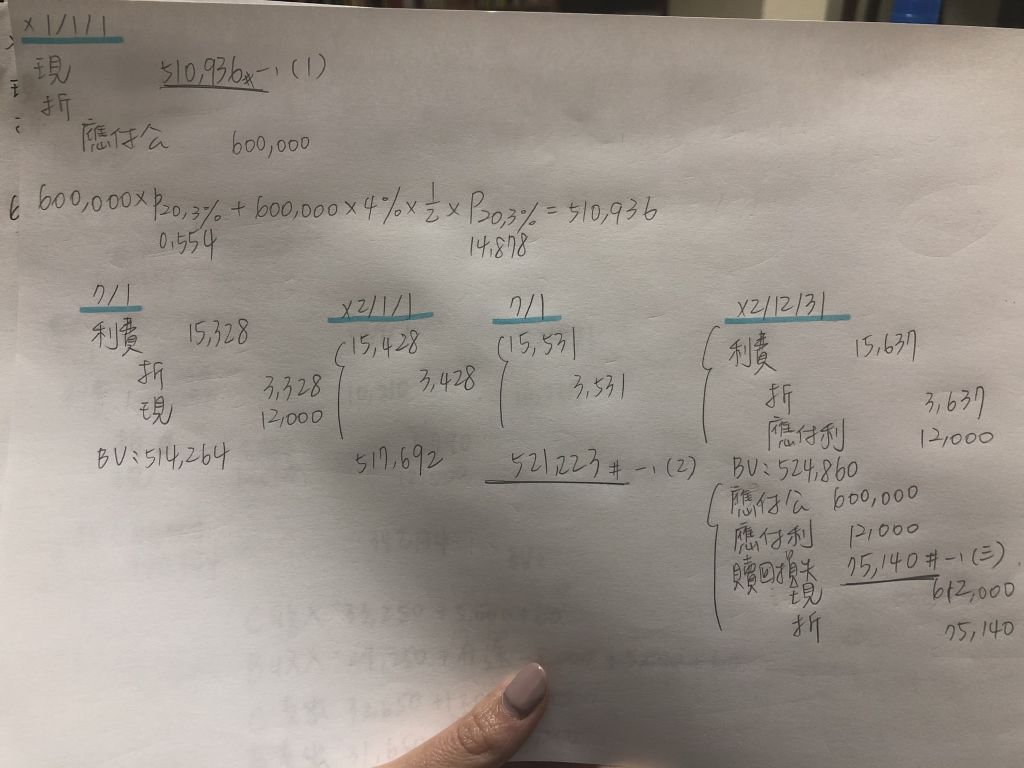 x1/1/1
現 510,936# 一、(1)
折
應付公 600,000
600,000×p20,3% + 600,000×4%×1/2×P20,3% = 510,936
0.554 14.878
7/1
利費 15,328
折 3,328
現 12,000
BV:514,264
x2/1/1
15,428
3,428
517,692
7/1
15,531
3,531
521,223# 一、(2)
x2/12/31
利費 15,637
折 3,637
應付利 12,000
BV:524,860
應付公 600,000
應付利 12,000
贖回損失 75,140# 一、(三)
現 612,000
折 75,140